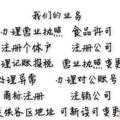 我们的业务
办理营业执照 食品许可
注册个体户 注册公司
理记账报税 営地址变更
办理异常 办理对公账号
商标注册 注销公司
供各区地址 可新设可变更